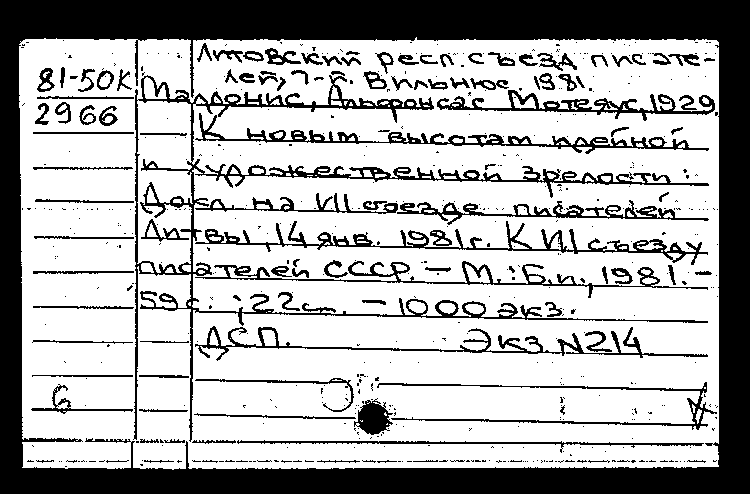 Литовский респ. съезд писате-
лей, 7-й. Вильнюс, 1981.
81-50К
2966
Малдонис, Альфонсас Мотеяус, 1929
К новым высотам идейной
и художественной зрелости:
Докл. на VII съезде писателей
Литвы, 14 янв. 1981г. К VII съезду
писателей СССР. - М.: Б.и., 1981. -
59 с. ; 22 cm. - 1000 экз.
ДСП. Экз. N214
6